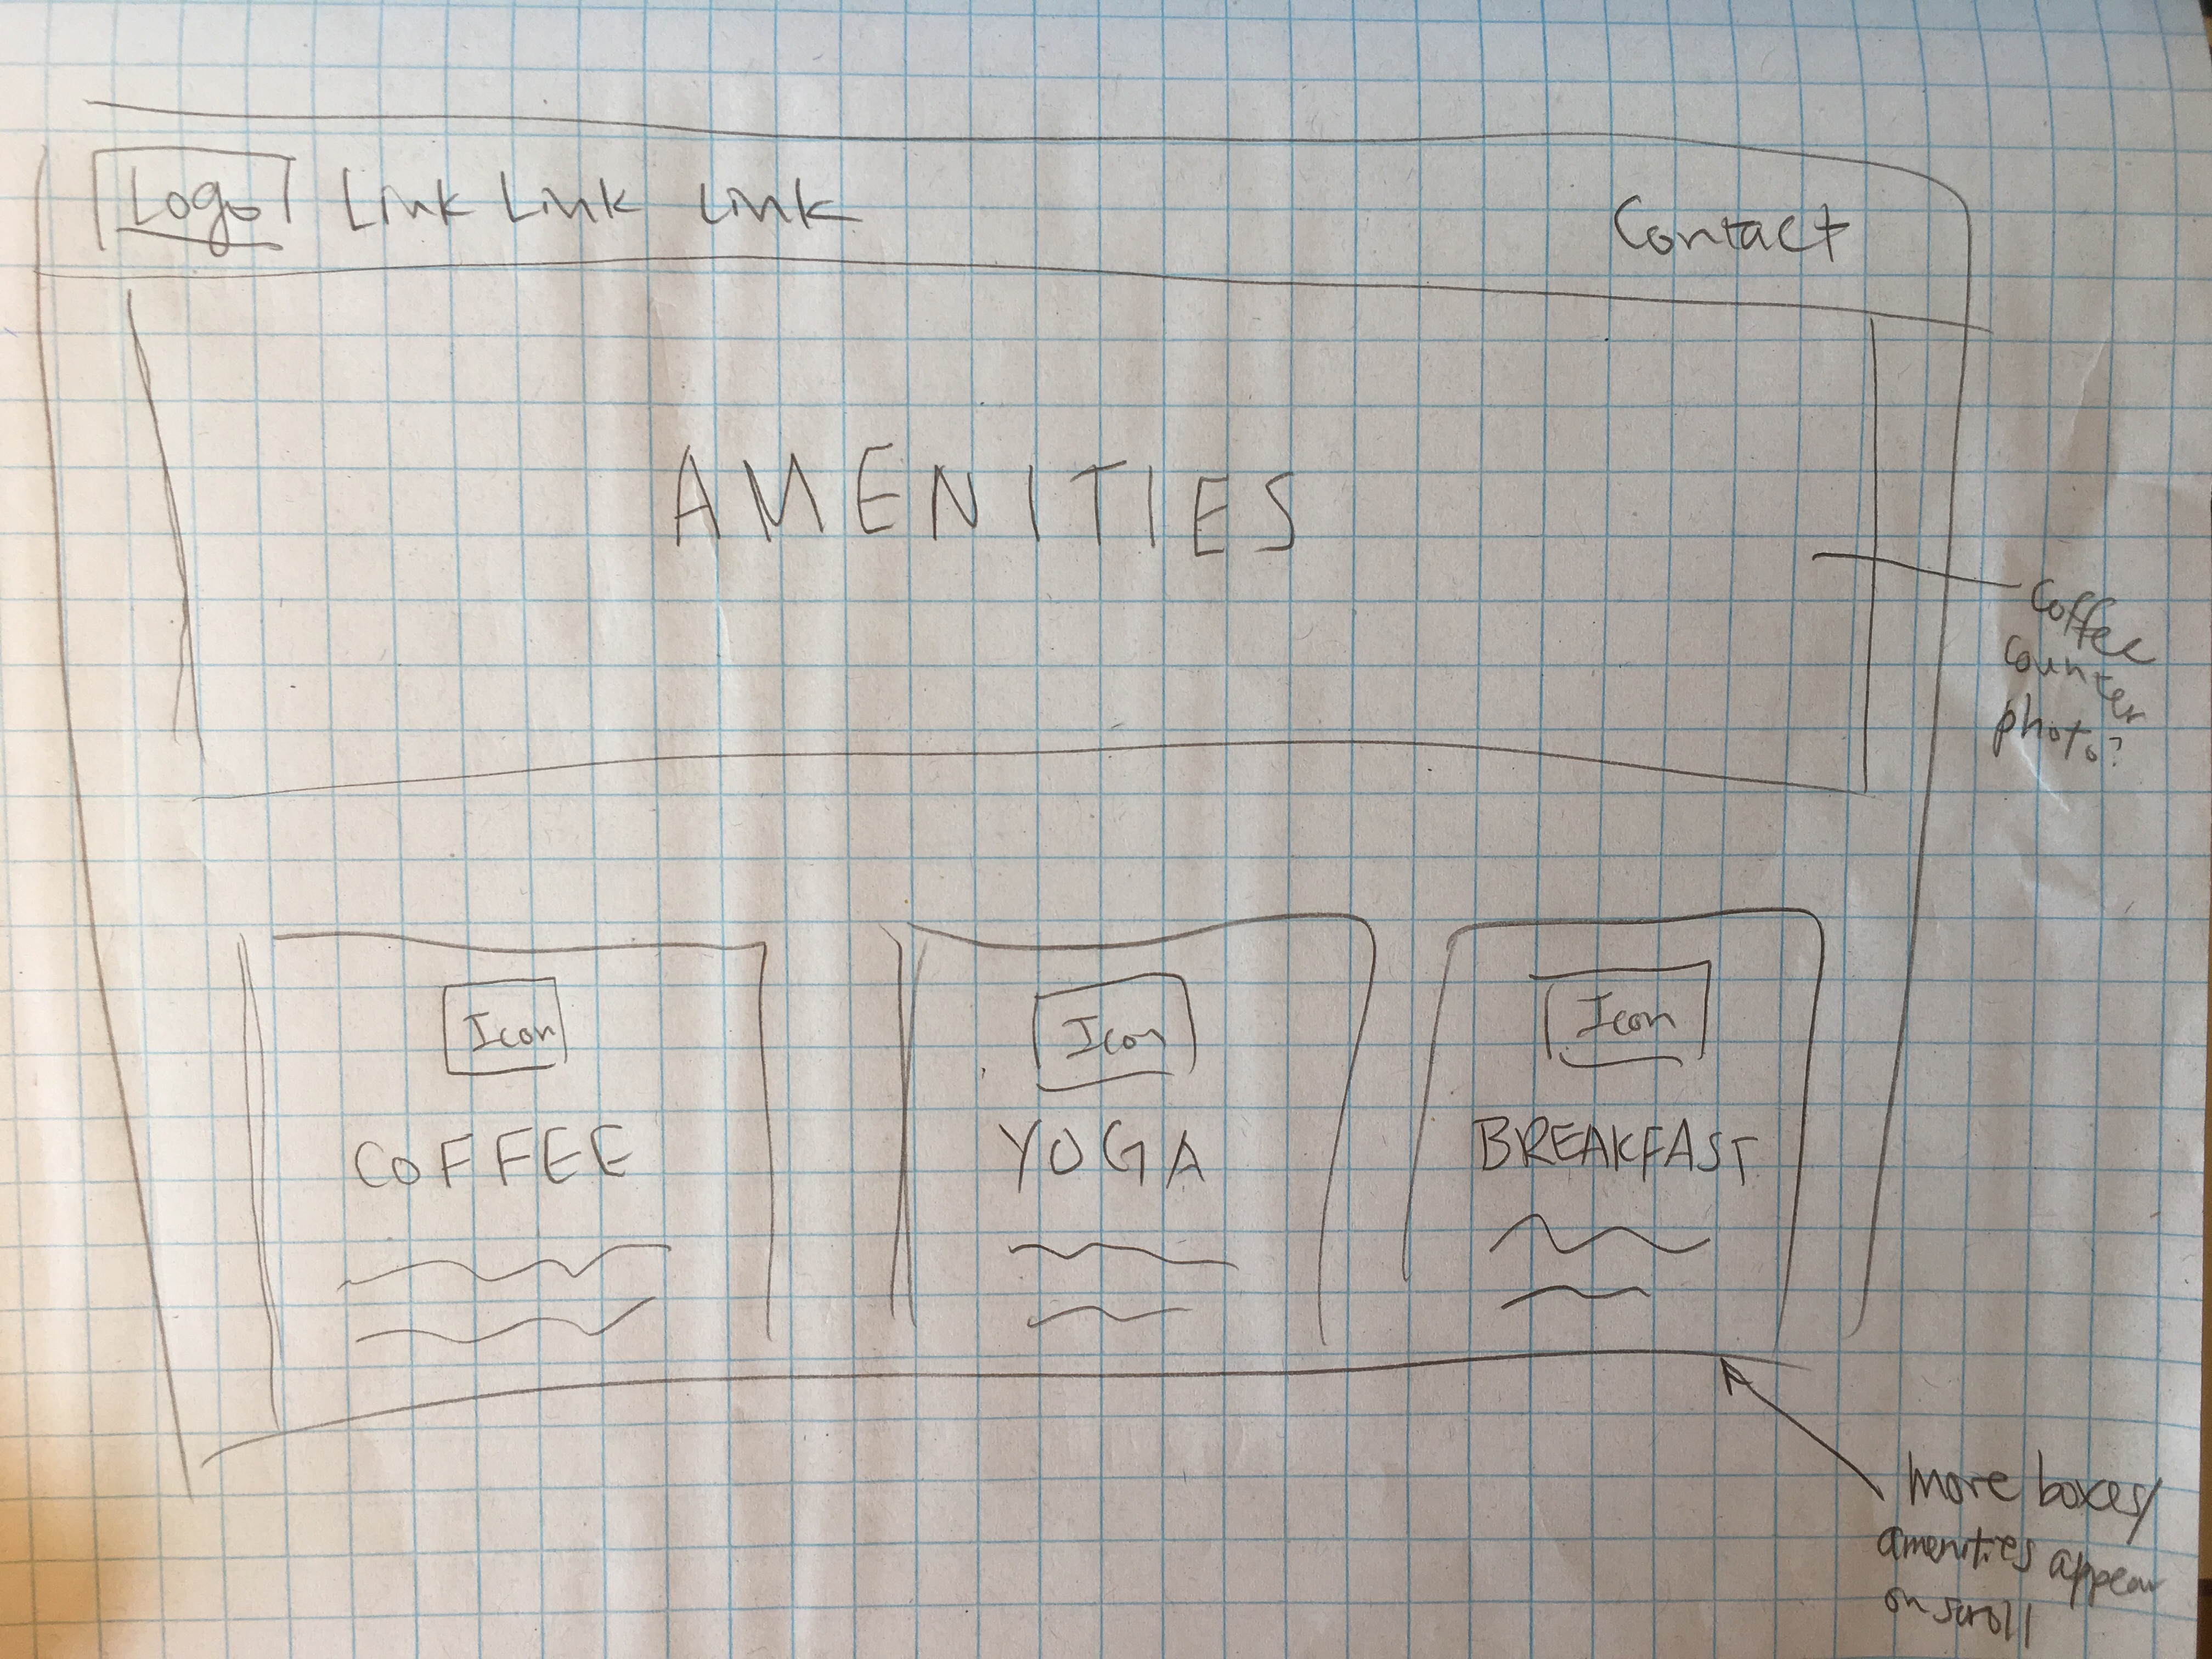 Logo Link Link Link Contact
AMENITIES
Coffee
counter
photo?
Icon Icon Icon
COFFEE YOGA BREAKFAST
more boxes/
amenities appear
on scroll